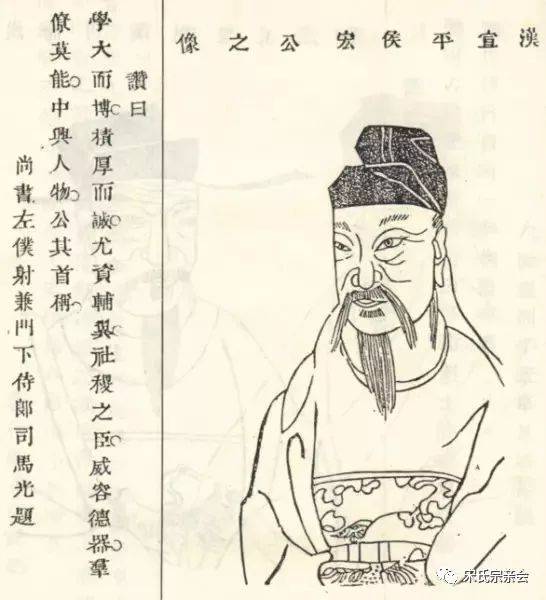 漢宣平侯宏公之像
讚曰
學大而博。積厚而誠。尤資輔翼。社稷之臣。威容德器。羣
僚莫能。中興人物。公其首稱。
尚書左僕射兼門下侍郎司馬光題
宋氏宗亲会